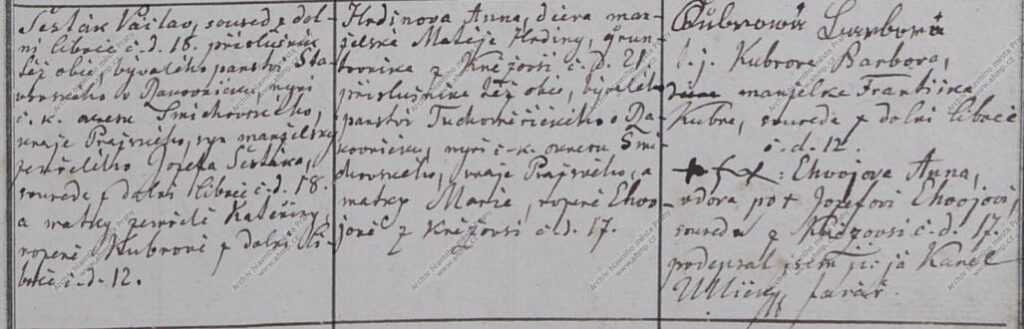 Šesták Václav, soused z dol-
ní Liběic č.d. 18. příslušník
též obce, bývalého panství Sta-
v Rakovnicku, nyní
č. k. okresu Smichovského,
kraje Pražského, syn manželský
zemřelého Jozefa Šestáka,
souseda z dolní Liběic č.d. 18.
a matky zemřelé Kateřiny,
rozené Kubrové z dolní Li-
běic č.d. 12.
Hrdinova Anna, dcera man-
želská Matěje Hrdiny, grun-
tovníka z Kněžovsi č. d. 21
příslušníka též obce, bývalého
panství Tuchoměřického v Ra-
kovnicku, nyní c-k. okresu Smi-
chovského, kraje Pražského, a
matky Marie, rozené Ehvo-
jové z Kněžovsi č d. 17.
Kubrowa Barbora
t. j. Kubrova Barbora,
manželka Františka
Kubra, souseda z dolní Liběic
č. d. 12.
+ + + : Ehvojova Anna,
vdova po + Jozefovi Ehvojovi,
sousedu z Kněžovsi č. d. 17.
podepsal jsem ji já Karel
farář.